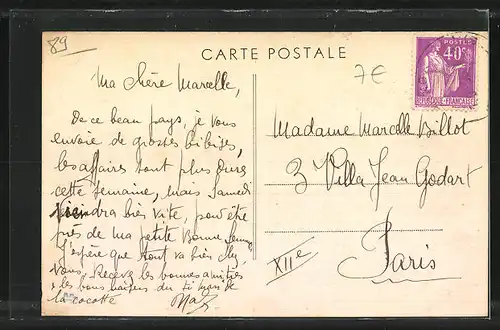 89
CARTE POSTALE
7€
POSTES
40c
REPUBLIQUE-FRANÇAISE
Ma chère Marcelle,
De ce beau pays, je vous
envoie de grosses bibises,
les affaires sont plus dures
cette semaine, mais Samedi
viendra bien vite, pour être
près de ma petite Bonne femme
J'espère que tout va bien chez
vous. Recevez les bonnes amitiés
& les bons baisers du
la cocotte
Madame Marcelle Billot
3 Villa Jean Godart
Paris
XIIe